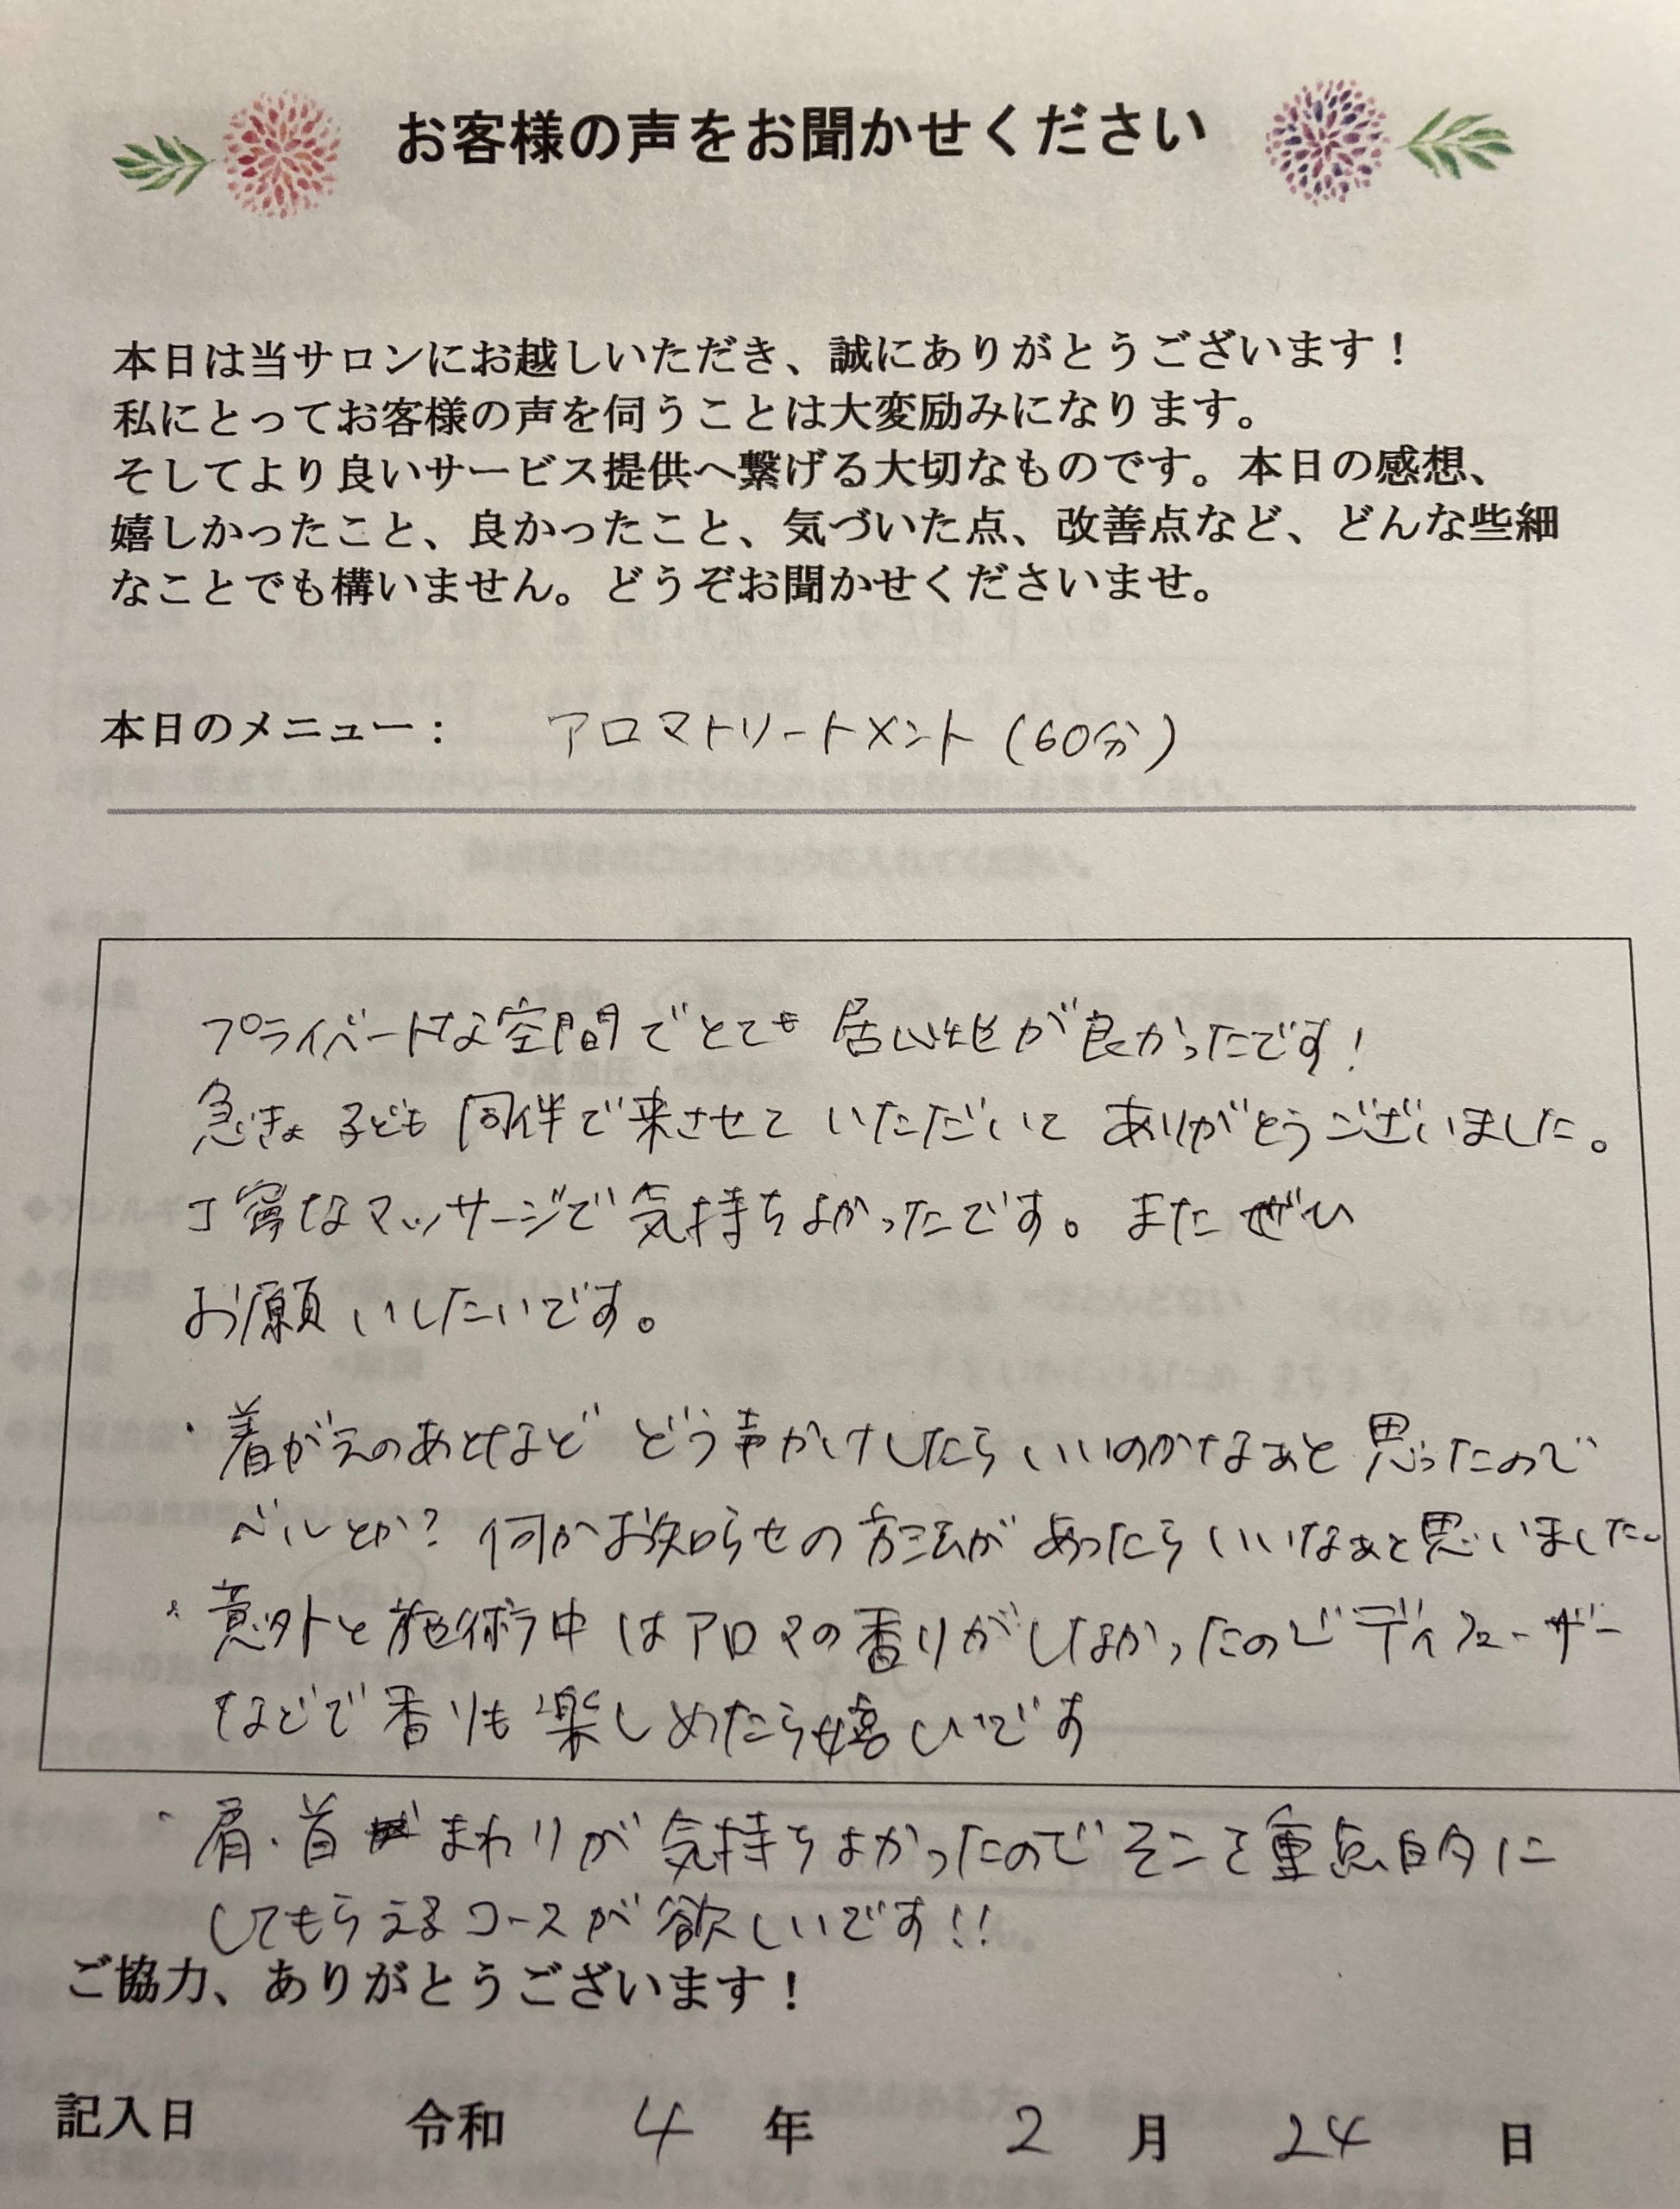 お客様の声をお聞かせください
本日は当サロンにお越しいただき、誠にありがとうございます！
私にとってお客様の声を伺うことは大変励みになります。
そしてより良いサービス提供へ繋げる大切なものです。本日の感想、
嬉しかったこと、良かったこと、気づいた点、改善点など、どんな些細
なことでも構いません。どうぞお聞かせくださいませ。
本日のメニュー： アロマトリートメント（60分）
プライベートな空間でとても居心地が良かったです！
急きょ子ども同伴で来させていただいてありがとうございました。
丁寧なマッサージで気持ちよかったです。またぜひ
お願いしたいです。
・着がえのあとなどどう声かけしたらいいのかなぁと思ったので
ベルとか？何かお知らせの方法があったらいいなぁと思いました。
・意外と施術中はアロマの香りがしなかったのでディフューザー
などで香りも楽しめたら嬉しいです
・肩・首まわりが気持ちよかったのでそこを重点的に
してもらえるコースが欲しいです!!
ご協力、ありがとうございます！
記入日 令和 4 年 2 月 24 日